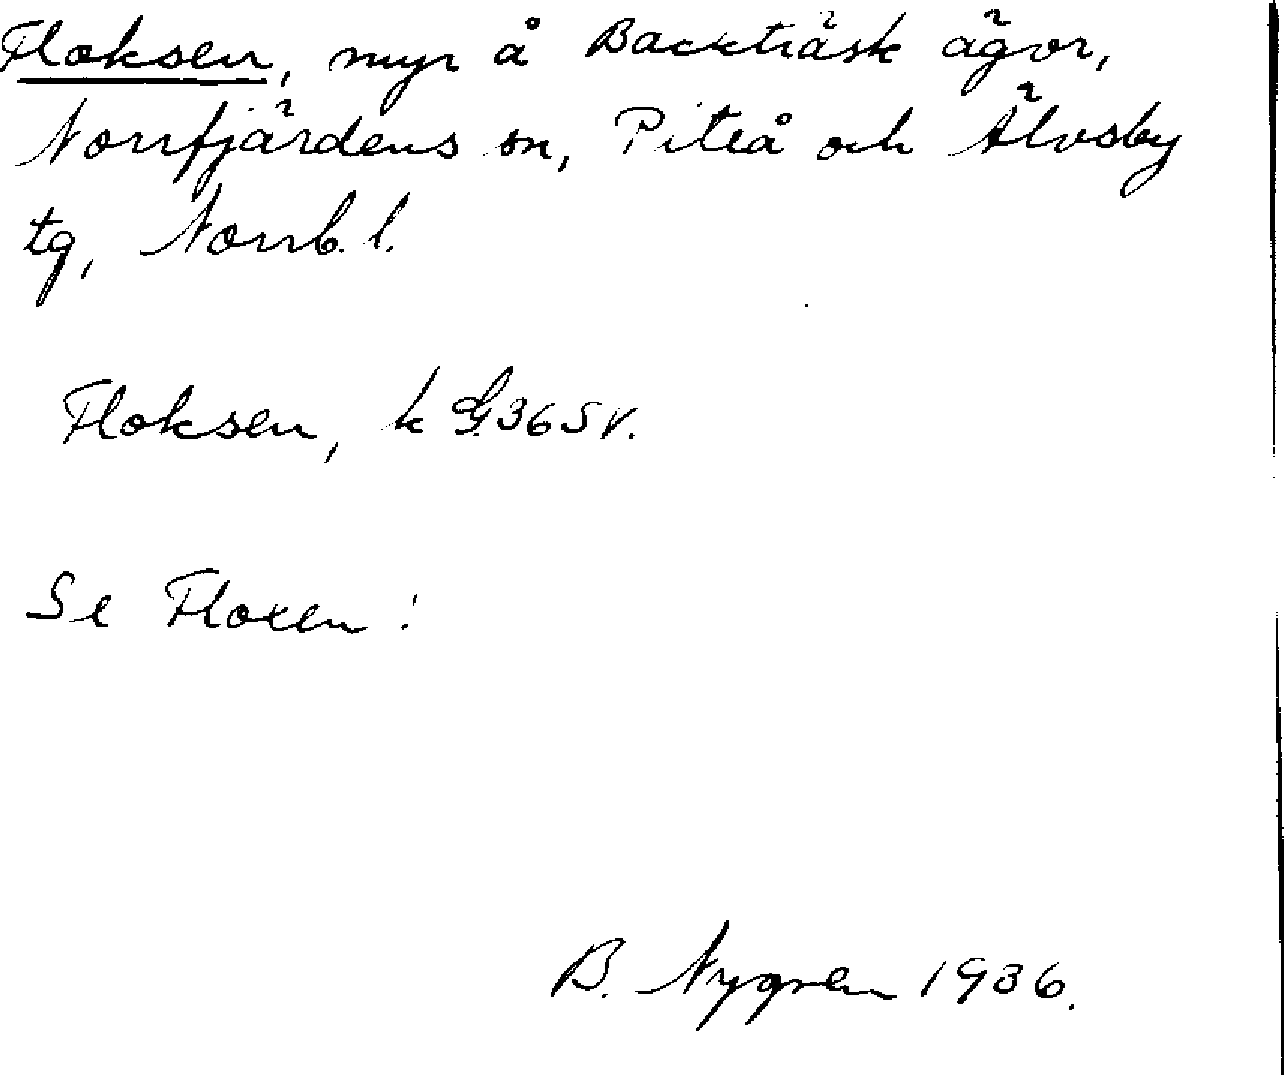 Floksen, myr å Backträsk ägor,
Norrfjärdens sn, Piteå och Älvsby
tg, Norrb. l.
Floksen, k G36SV.
Se Floxen!
B. Nygren 1936.